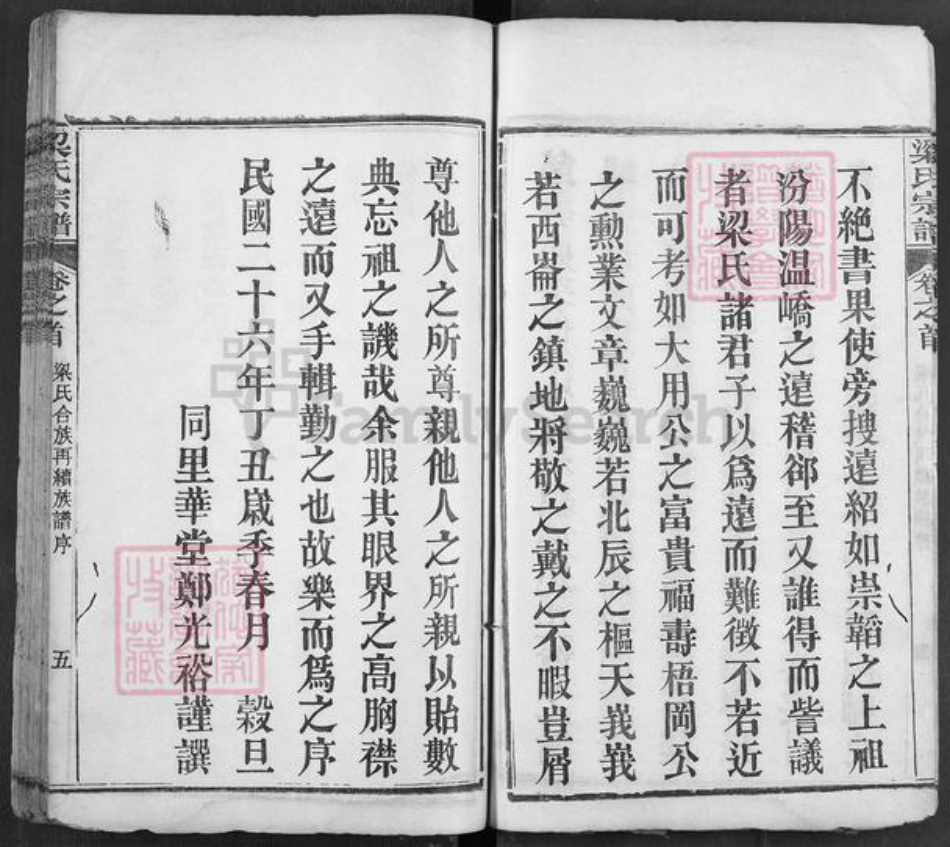 梁氏宗譜
卷之首
不絕書果使旁搜遠紹如崇韜之上祖
汾陽温嶠之遠稽郤至又誰得而訾議
者梁氏諸君子以爲遠而難徵不若近
而可考如大用公之富貴福壽梧岡公
之勳業文章巍巍若北辰之樞天峩峩
若西崙之鎮地將敬之戴之不暇豈屑
尊他人之所尊親他人之所親以貽數
典忘祖之譏哉余服其眼界之高胸襟
之遠而又手輯勤之也故樂而爲之序
民國二十六年丁丑歲季春月 穀旦
同里華堂鄭光裕謹譔
梁氏宗譜
卷之首
梁氏合族再續族譜序
五
FamilySearch